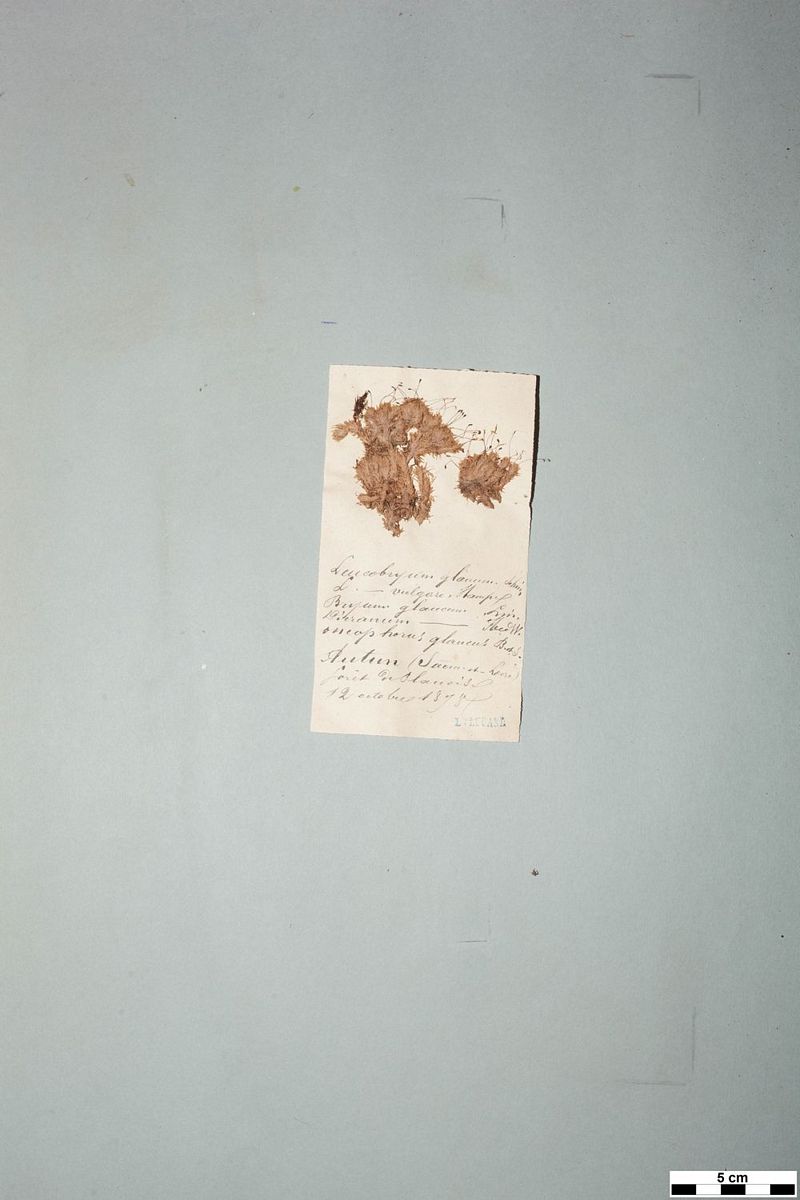 Leucobryum glaucum
L. — vulgare Hampe
Bryum glaucum Lin.
Dicranum — Hedw.
oncophorus glaucus B.et S.
Autun (Saone-et-Loire)
forêt de Planoise
12 octobre 1878
5 cm